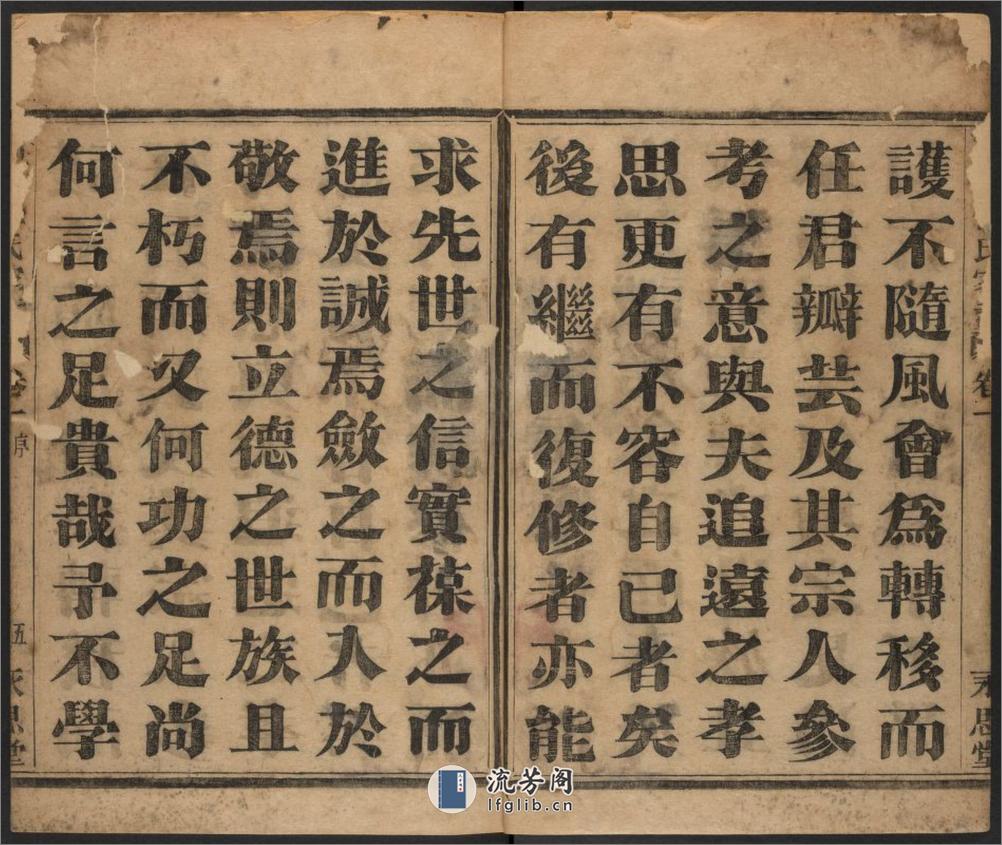 護不隨風會爲轉移而
任君瓣芸及其宗人參
考之意與夫追遠之孝
思更有不容自已者矣
後有繼而復修者亦能
求先世之信實葆之而
進於誠焉斂之而入於
敬焉則立德之世族且
不朽而又何功之足尚
何言之足貴哉予不學
卷一
序
五
永思堂
流芳阁
lfglib.cn